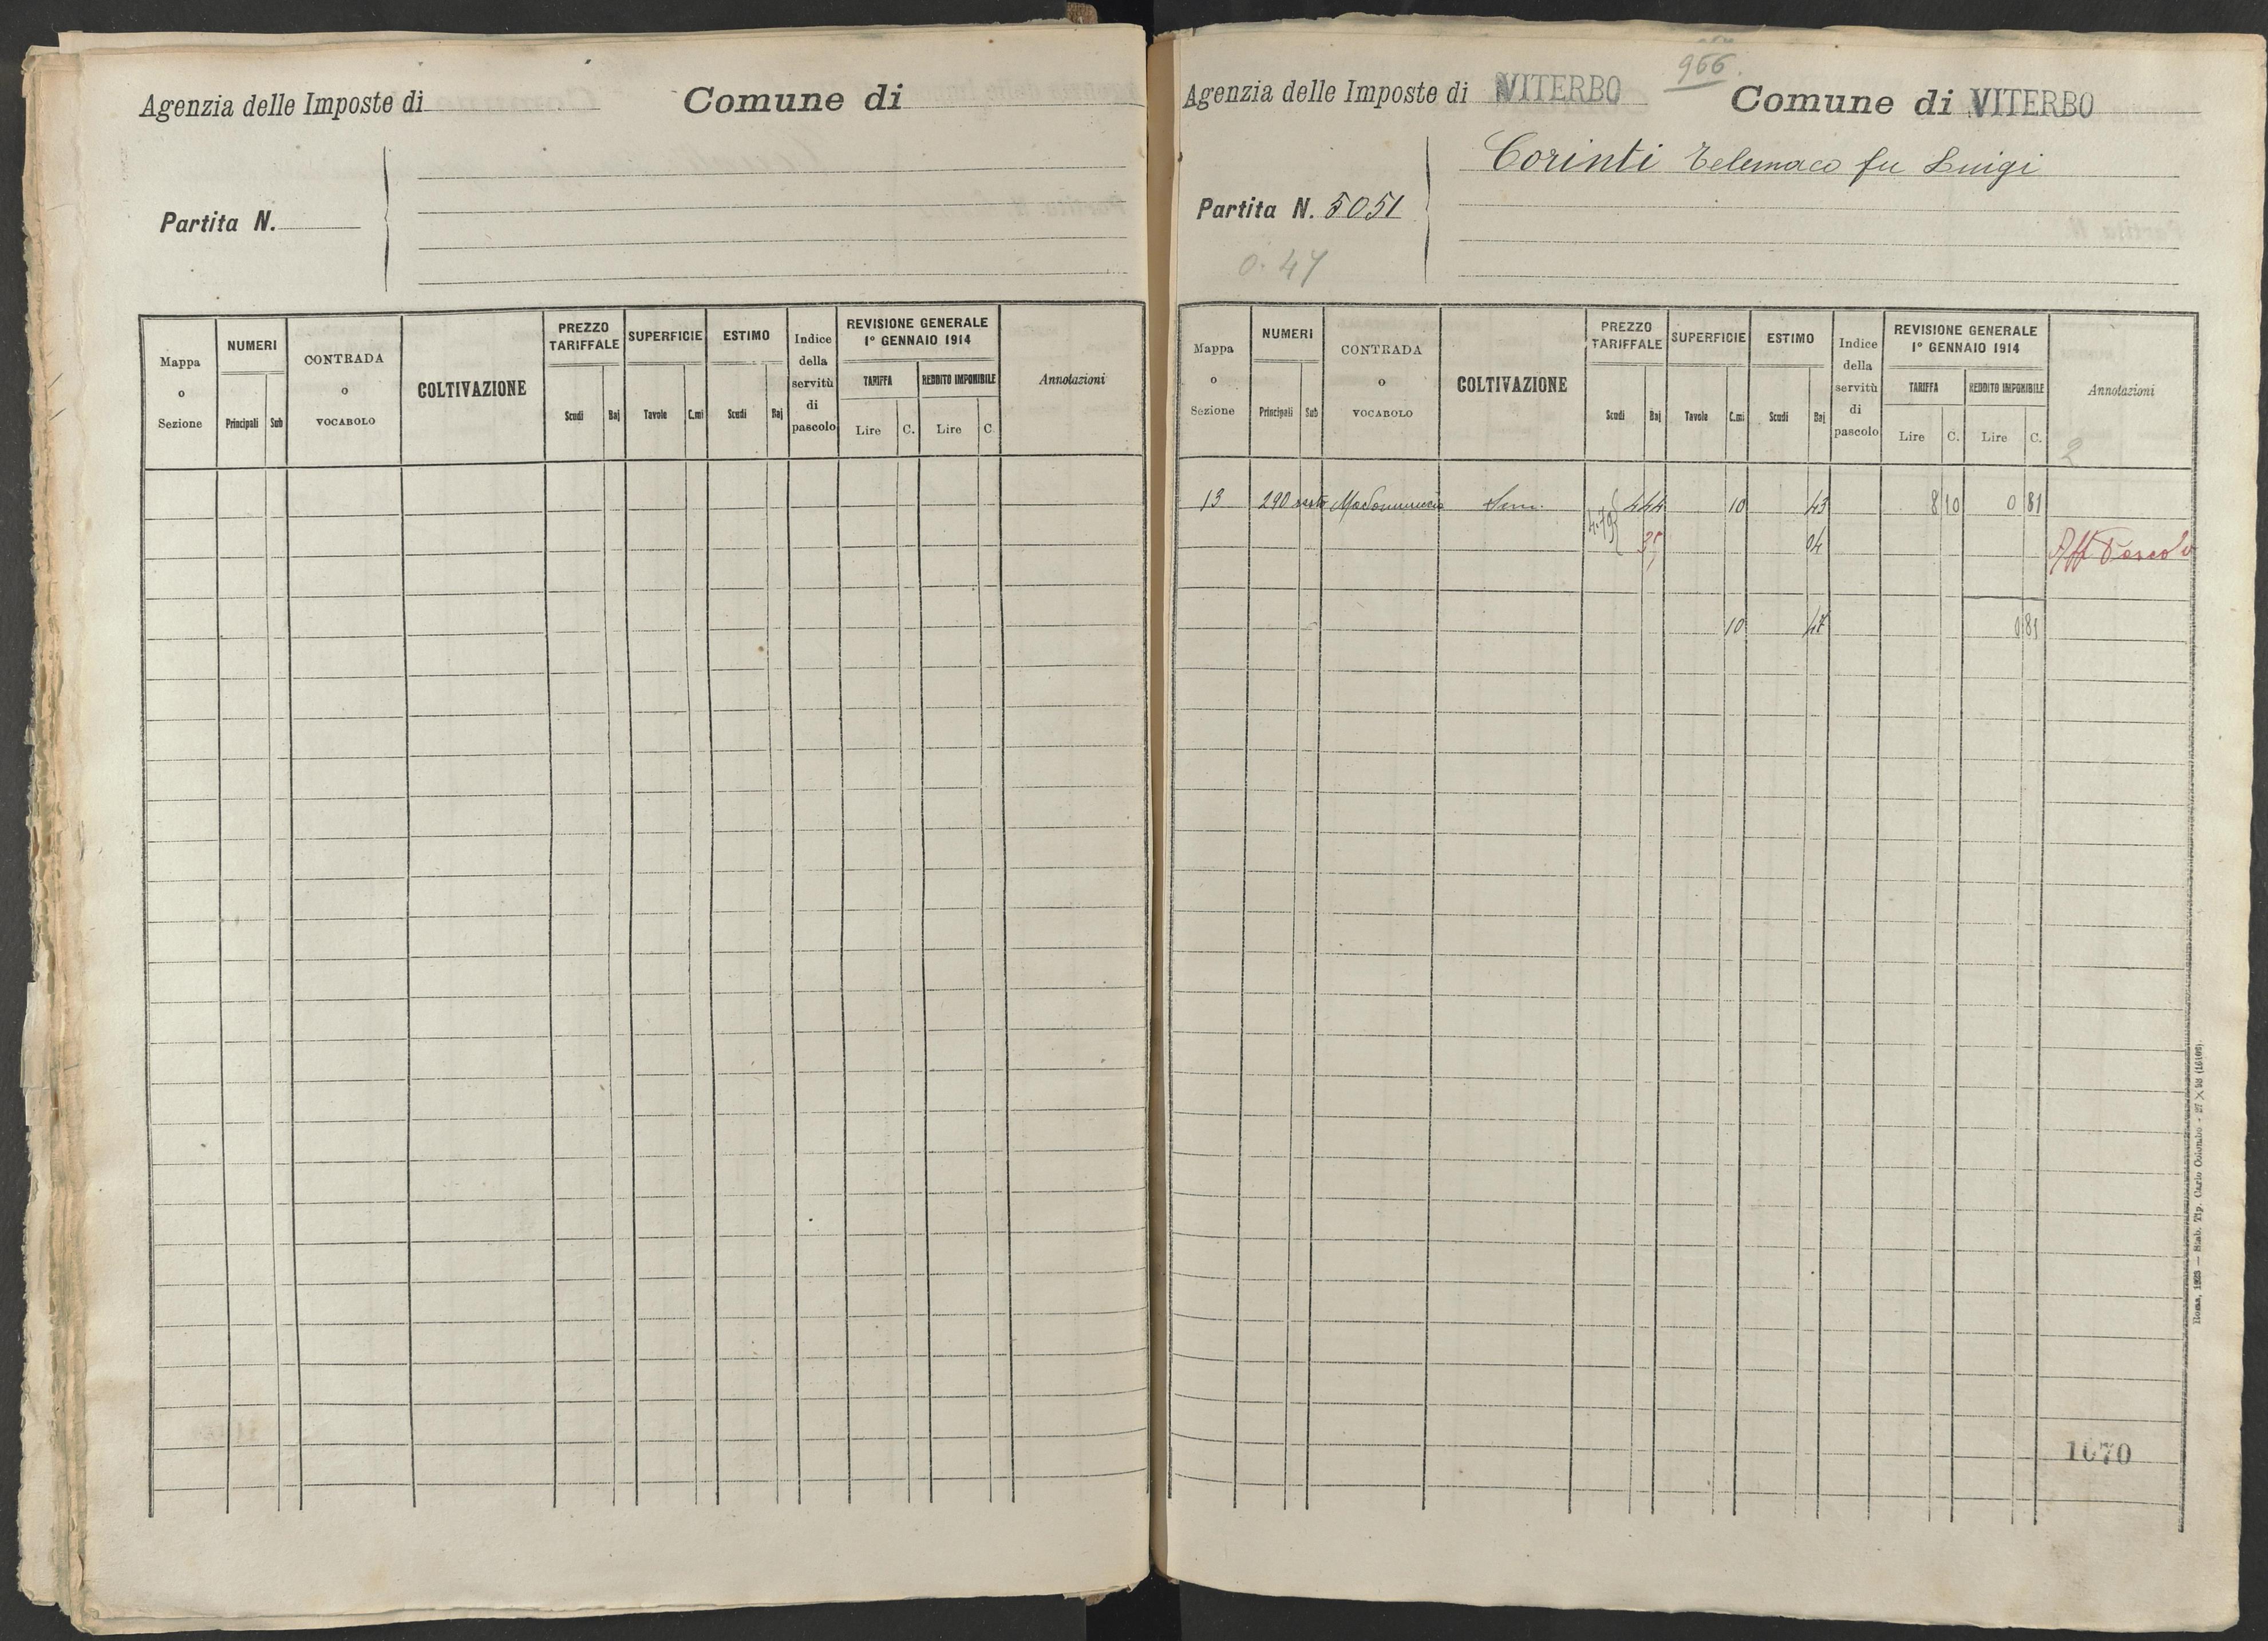 Agenzia delle Imposte di
Comune di
Partita N.
Mappa o Sezione
NUMERI
Principali Sub
CONTRADA o VOCABOLO
COLTIVAZIONE
PREZZO TARIFFALE
Scudi Baj
SUPERFICIE
Tavole C.mi
ESTIMO
Scudi Baj
Indice della servitù di pascolo
REVISIONE GENERALE
1° GENNAIO 1914
TARIFFA REDDITO IMPONIBILE
Lire C. Lire C
Annotazioni
966.
Agenzia delle Imposte di VITERBO
Comune di VITERBO
Corinti Telemaco fu Luigi
Partita N. 5051
0.47
Mappa o Sezione
NUMERI
Principali Sub
CONTRADA o VOCABOLO
COLTIVAZIONE
PREZZO TARIFFALE
Scudi Baj
SUPERFICIE
Tavole C.mi
ESTIMO
Scudi Baj
Indice della servitù di pascolo
REVISIONE GENERALE
1° GENNAIO 1914
TARIFFA REDDITO IMPONIBILE
Lire C. Lire C.
Annotazioni
2
13 290 resto Sem. 444 10 43 8 10 0 81
4.79 35 04 Aff Pascolo
10 47 0 81
Roma, 1923 — Stab. Tip. Carlo Colombo -
1070